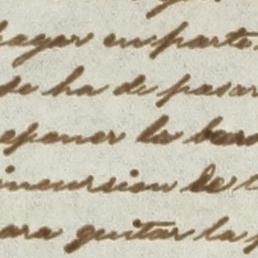 pagar en parte
se ha de pasar
eponer la
incursion de
para quitar la